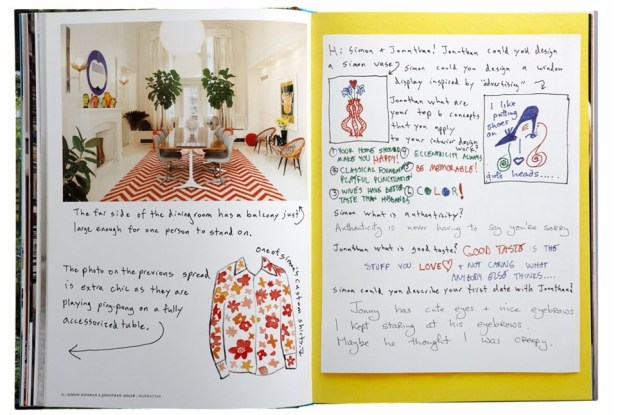 The far side of the diningroom has a balcony just
large enough for one person to stand on.
The photo on the previous spread
is extra chic as they are
playing ping-pong on a fully
accessorized table.
one of simon's custom shirts.
SIMON DOONAN & JONATHAN ADLER | MANHATTAN
Hi Simon + Jonathan! Jonathan could you design
a simon vase?
Simon could you design a window
display inspired by "advertising"
Jonathan what are
your top 6 concepts
that you apply
to your interior design
work?
I like
putting
shoes
on
girls heads.....
① YOUR HOME SHOULD
MAKE YOU HAPPY!
② ECCENTRICITY ALWAYS
④ CLASSICAL FOUNDATION
PLAYFUL PUNCTUATION
⑤ BE MEMORABLE!
③ WIVES HAVE BETTER
TASTE THAN HUSBANDS
⑥ COLOR!
Simon what is authenticity?
Authenticity is never having to say you're sorry
Jonathan what is good taste? GOOD TASTE IS THE
STUFF YOU LOVE + NOT CARING WHAT
ANYBODY ELSE THINKS....
Simon could you describe your first date with Jonathan?
Jonny has cute eyes + nice eyebrows
I kept staring at his eyebrows.
Maybe he thought I was creepy.